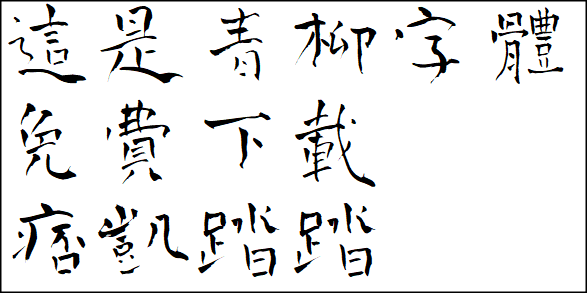 這是青柳字體
免費下載
痞凱踏踏